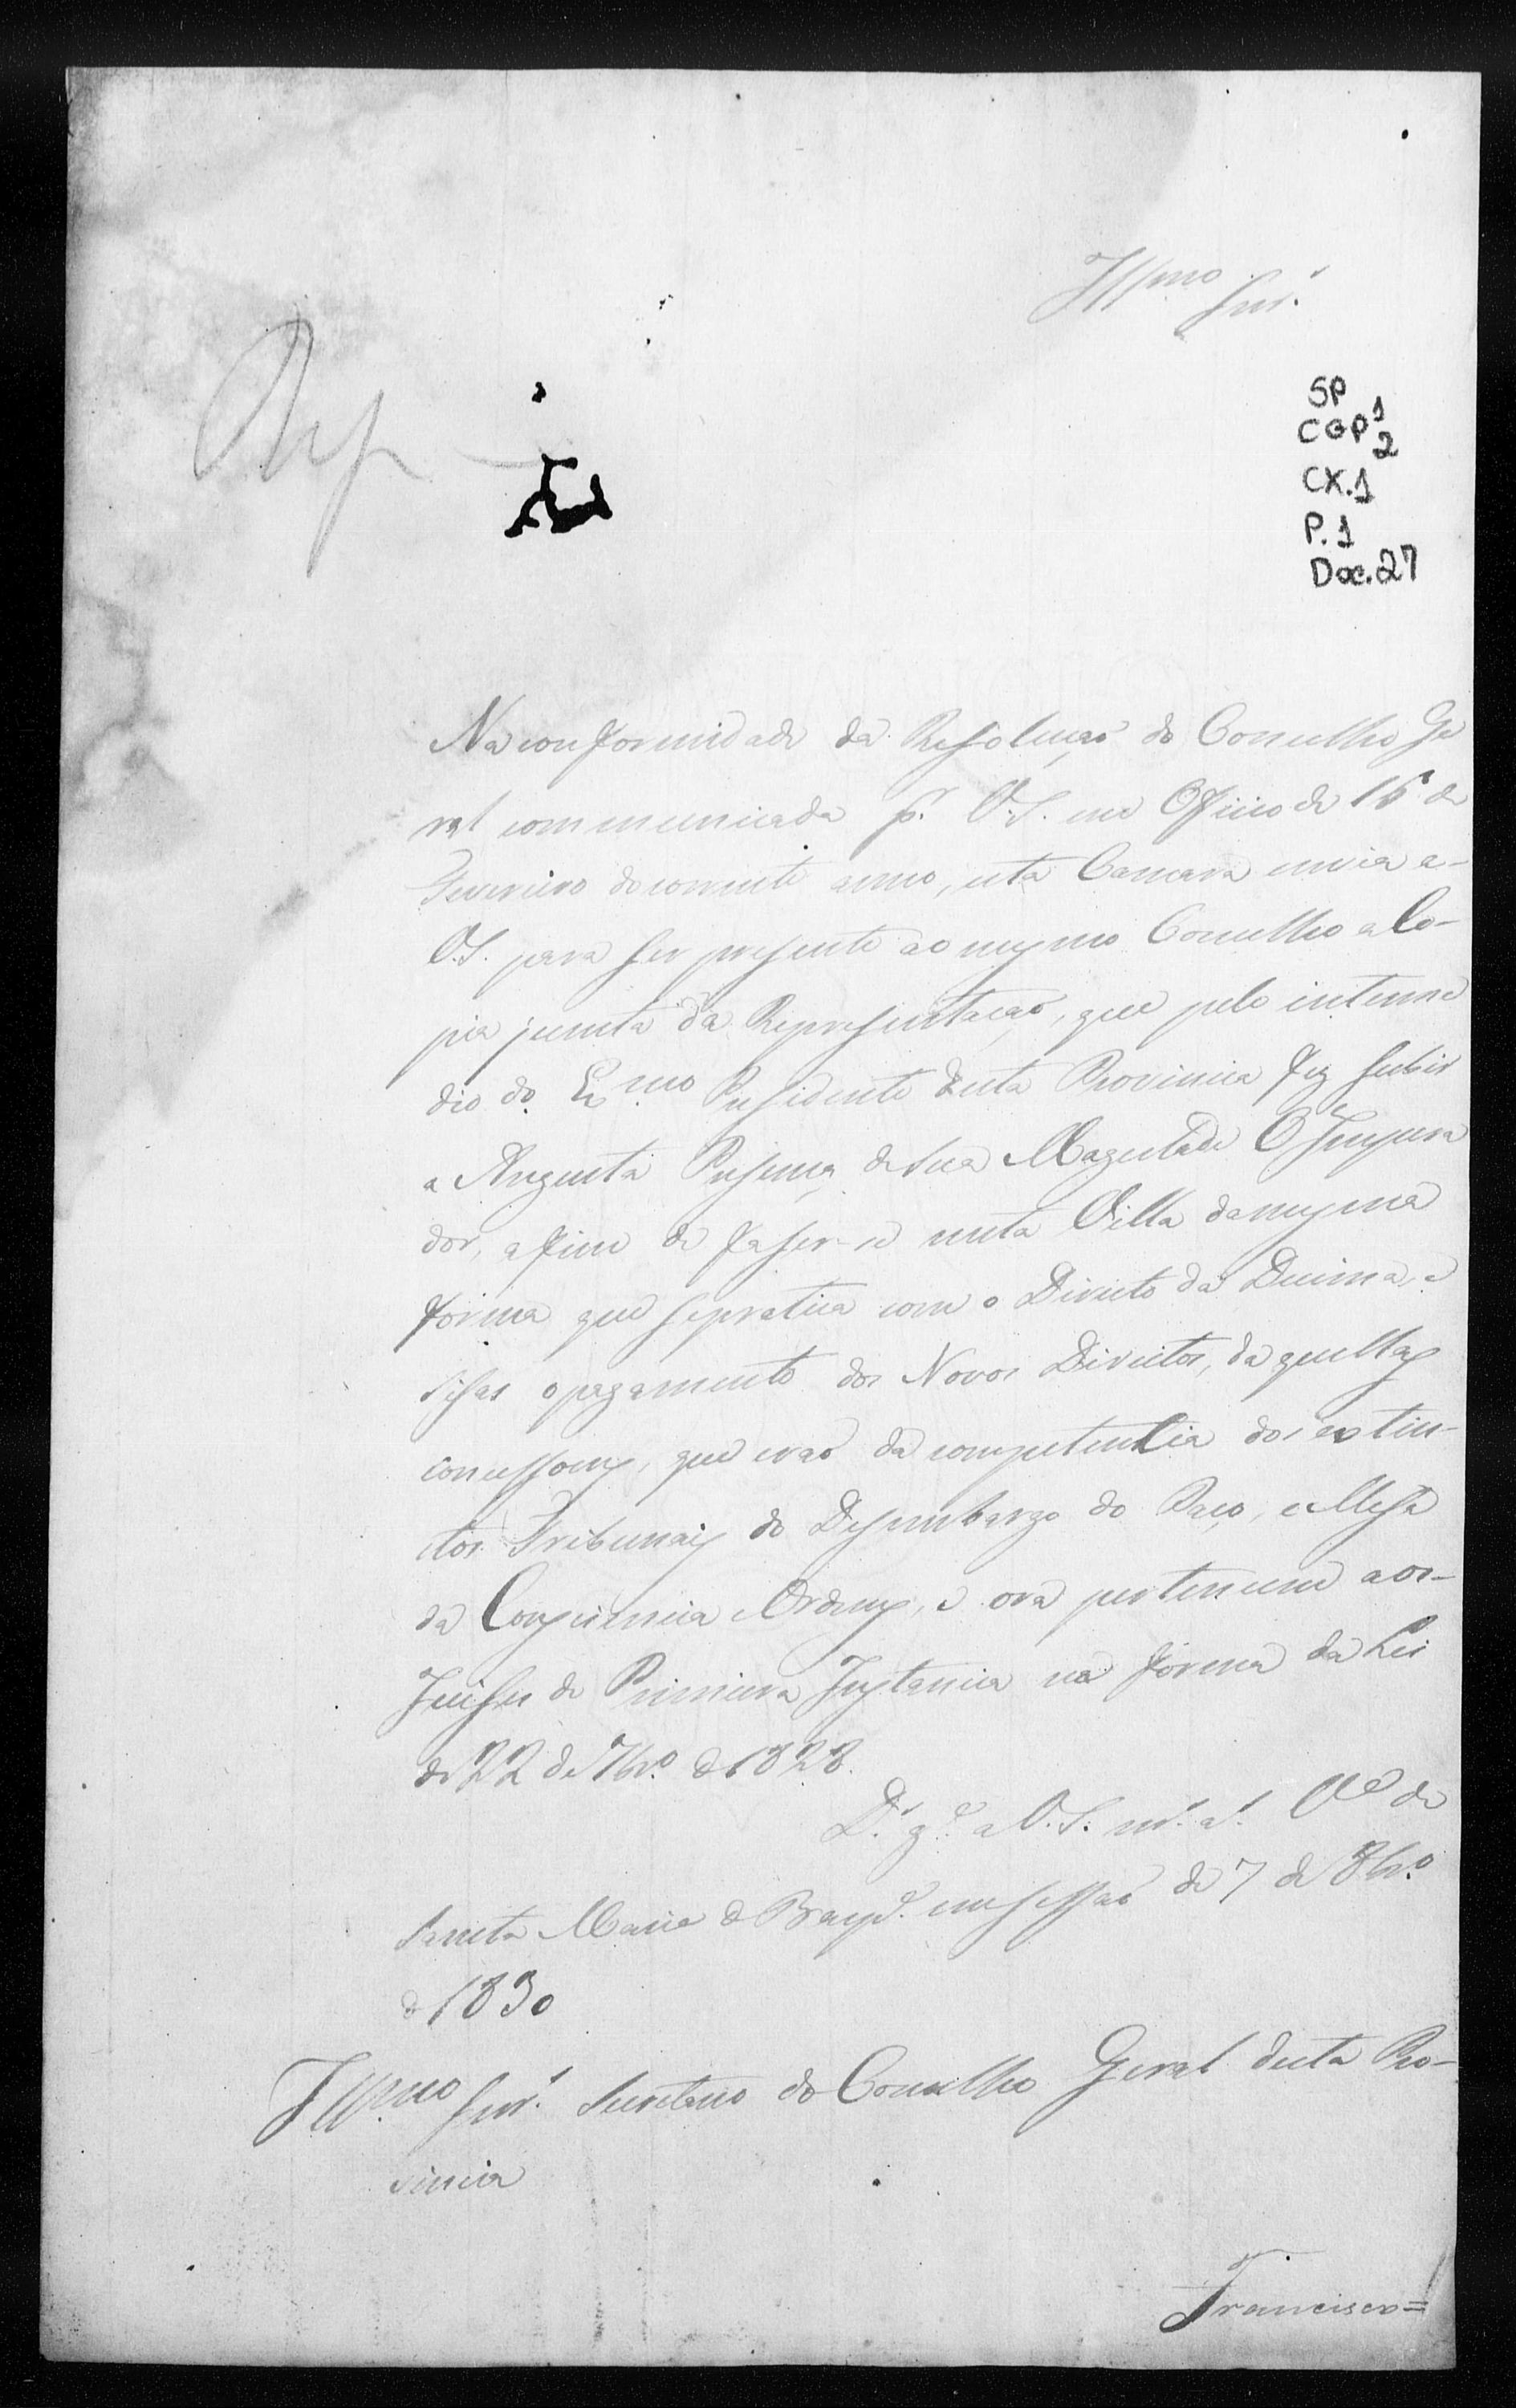 Illmo Snr.
SP
CGP 1
2
CX.1
P.1
Doc.27
Na conformidade da Resolução do Concelho Ge
ral communicada pr. V.S. em Officio de 16 de
Fevereiro do corrente anno, esta Camara envia a-
V.S. para ser presente ao mesmo Concelho a Co-
pia junta da Representação, que pelo interme
dio do Exmo Presidente desta Provincia fez subir
a Augusta Presença de Sua Magestade O Impera
dor, a fim de faser-se nesta Villa da mesma
forma que se pratica com o Direito da Decima, e
Sisas o pagamento dos Novos Direitos, da quellas
concessoens, que erao da competencia dos extin-
ctos Tribunais do Desembargo do Paço, e Mesa
da Consciencia e Ordens, e ora pertencem aos-
Juises de Primeira Instancia na forma da Lei
de 22 de 7bro de 1828.
Ds. ge. a V.S. ms. as. Va de
Santa Maria de Baepde. em sessao de 7 de 8bro
de 1830
Illmo Snr. Secretario do Concelho Geral desta Pro-
vincia
Francisco=